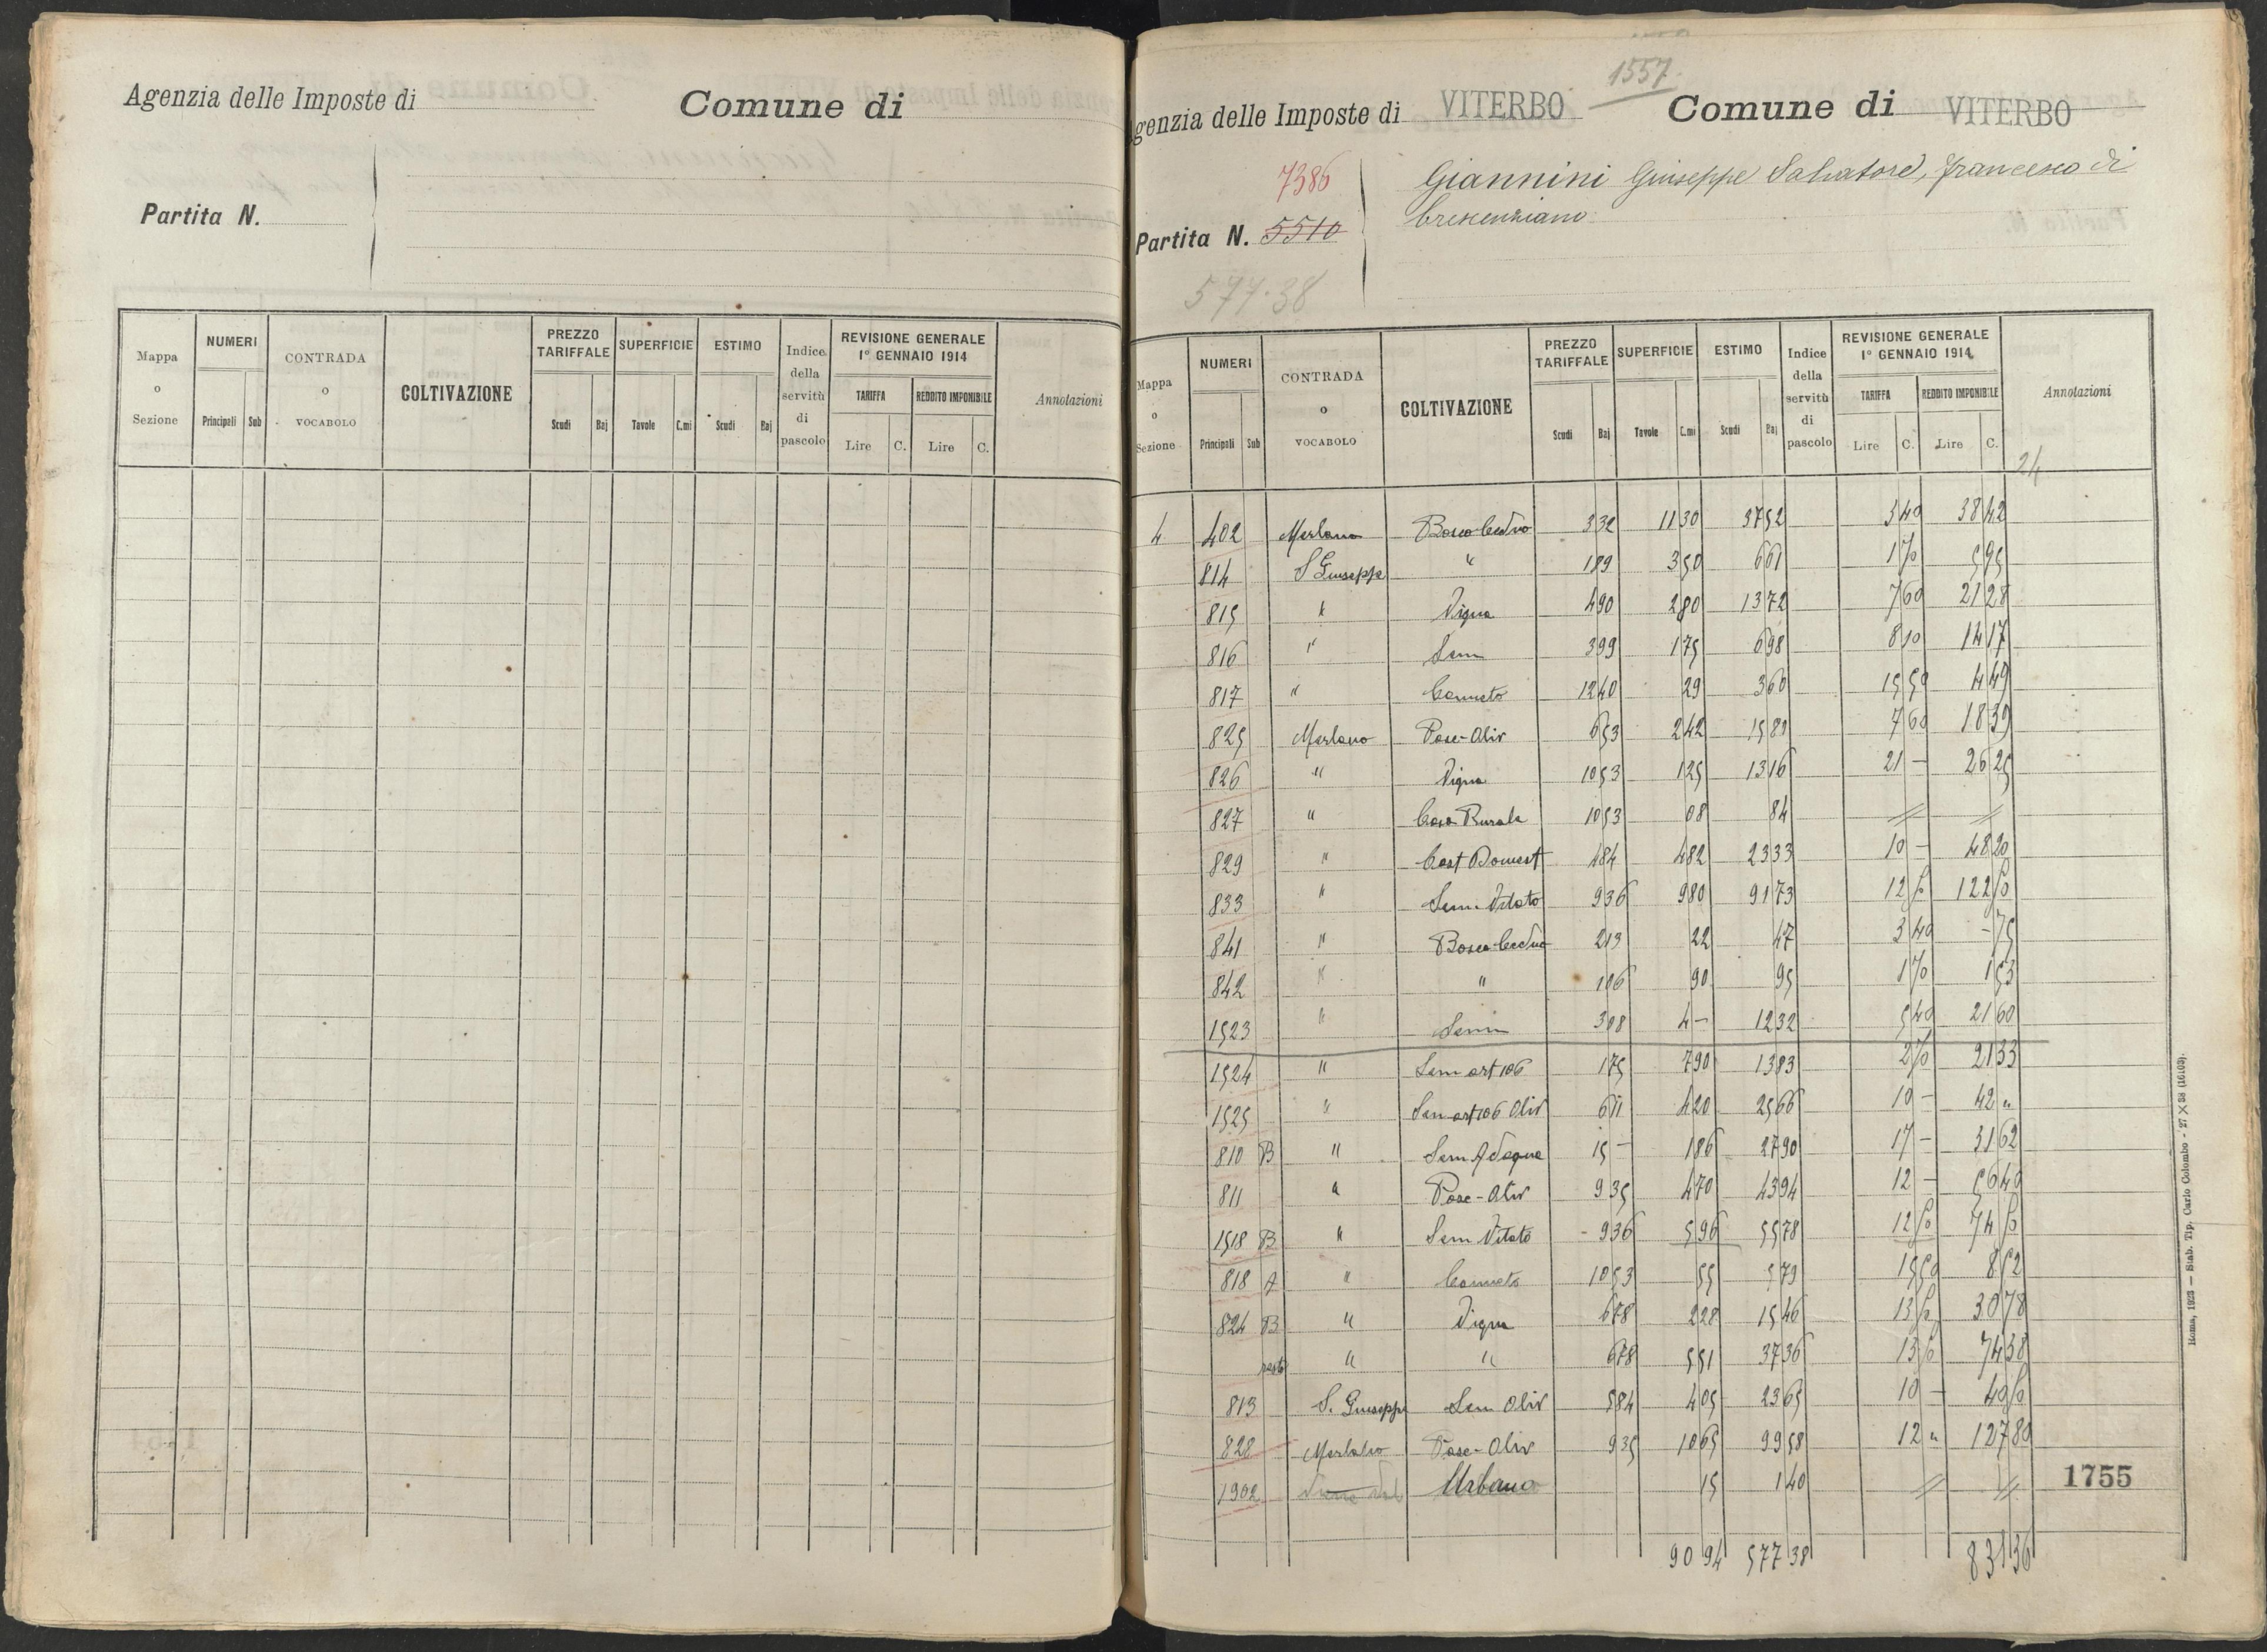 Agenzia delle Imposte di
Comune di
Partita N.
Mappa o Sezione
NUMERI
Principali Sub
CONTRADA o VOCABOLO
COLTIVAZIONE
PREZZO TARIFFALE
Scudi Baj
SUPERFICIE
Tavole C.mi
ESTIMO
Scudi Baj
Indice della servitù di pascolo
REVISIONE GENERALE 1° GENNAIO 1914
TARIFFA
Lire C.
REDDITO IMPONIBILE
Lire C.
Annotazioni
1557
genzia delle Imposte di VITERBO Comune di VITERBO
7386
Partita N. 5510
577.38
Giannini Giuseppe Salvatore, Francesco di
Crescenziano
Mappa o Sezione
NUMERI
Principali Sub
CONTRADA o VOCABOLO
COLTIVAZIONE
PREZZO TARIFFALE
Scudi Baj
SUPERFICIE
Tavole C.mi
ESTIMO
Scudi Baj
Indice della servitù di pascolo
REVISIONE GENERALE 1° GENNAIO 1914
TARIFFA
Lire C.
REDDITO IMPONIBILE
Lire C.
Annotazioni
24
4 402 Merlano Bosco Ceduo 3 32 11 30 37 52 3 40 38 42
814 S Giuseppe " 1 89 3 50 6 61 1 70 5 95
815 " Vigna 4 90 2 80 13 72 7 60 21 28
816 " Sem 3 99 1 75 6 98 8 10 14 17
817 " Canneto 12 40 29 3 60 15 50 4 49
825 Merlano Pasc-Oliv 6 53 2 42 15 80 7 60 18 39
826 " Vigna 10 53 1 25 13 16 21 – 26 25
827 " Casa Rurale 10 53 08 84 // //
829 " Cast Domest 4 84 4 82 23 33 10 – 48 20
833 " Sem. Vitato 9 36 9 80 91 73 12 50 122 50
841 " Bosco Ceduo 2 13 22 47 3 40 – 75
842 " " 1 06 90 95 1 70 1 53
1523 " Sem 3 08 4 – 12 32 5 40 21 60
1524 " Sem art 106 1 75 7 90 13 83 2 70 21 33
1525 " Sem art 106 Oliv 6 11 4 20 25 66 10 – 42 "
810 B " Sem Adaqua 15 – 1 86 27 90 17 – 31 62
811 " Pasc-Oliv 9 35 4 70 43 94 12 – 56 40
1518 B " Sem Vitato 9 36 5 96 55 78 12 50 74 50
818 A " Canneto 10 53 55 5 79 15 50 8 52
824 B " Vigna 6 78 2 28 15 46 13 50 30 78
resto " " 6 78 5 51 37 36 13 50 74 38
813 S. Giuseppe Sem Oliv 5 84 4 05 23 65 10 – 40 50
828 Merlano Pasc-Oliv 9 35 10 65 99 58 12 " 127 80
1902 Urbano 15 1 40 // //
90 94 577 38 831 36
1755
Roma, 1923 — Stab. Tip. Carlo Colombo - 27 × 38 (16103).